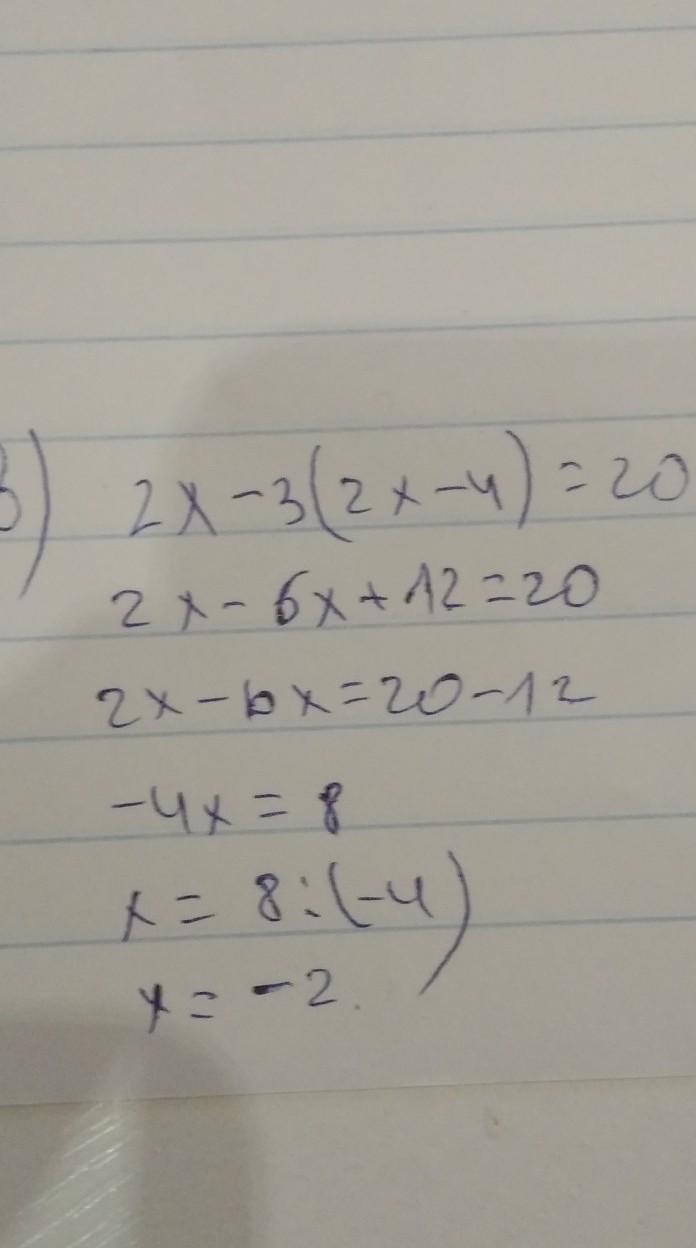 в) 2x-3(2x-4)=20
2x-6x+12=20
2x-6x=20-12
-4x=8
x=8:(-4)
x=-2.